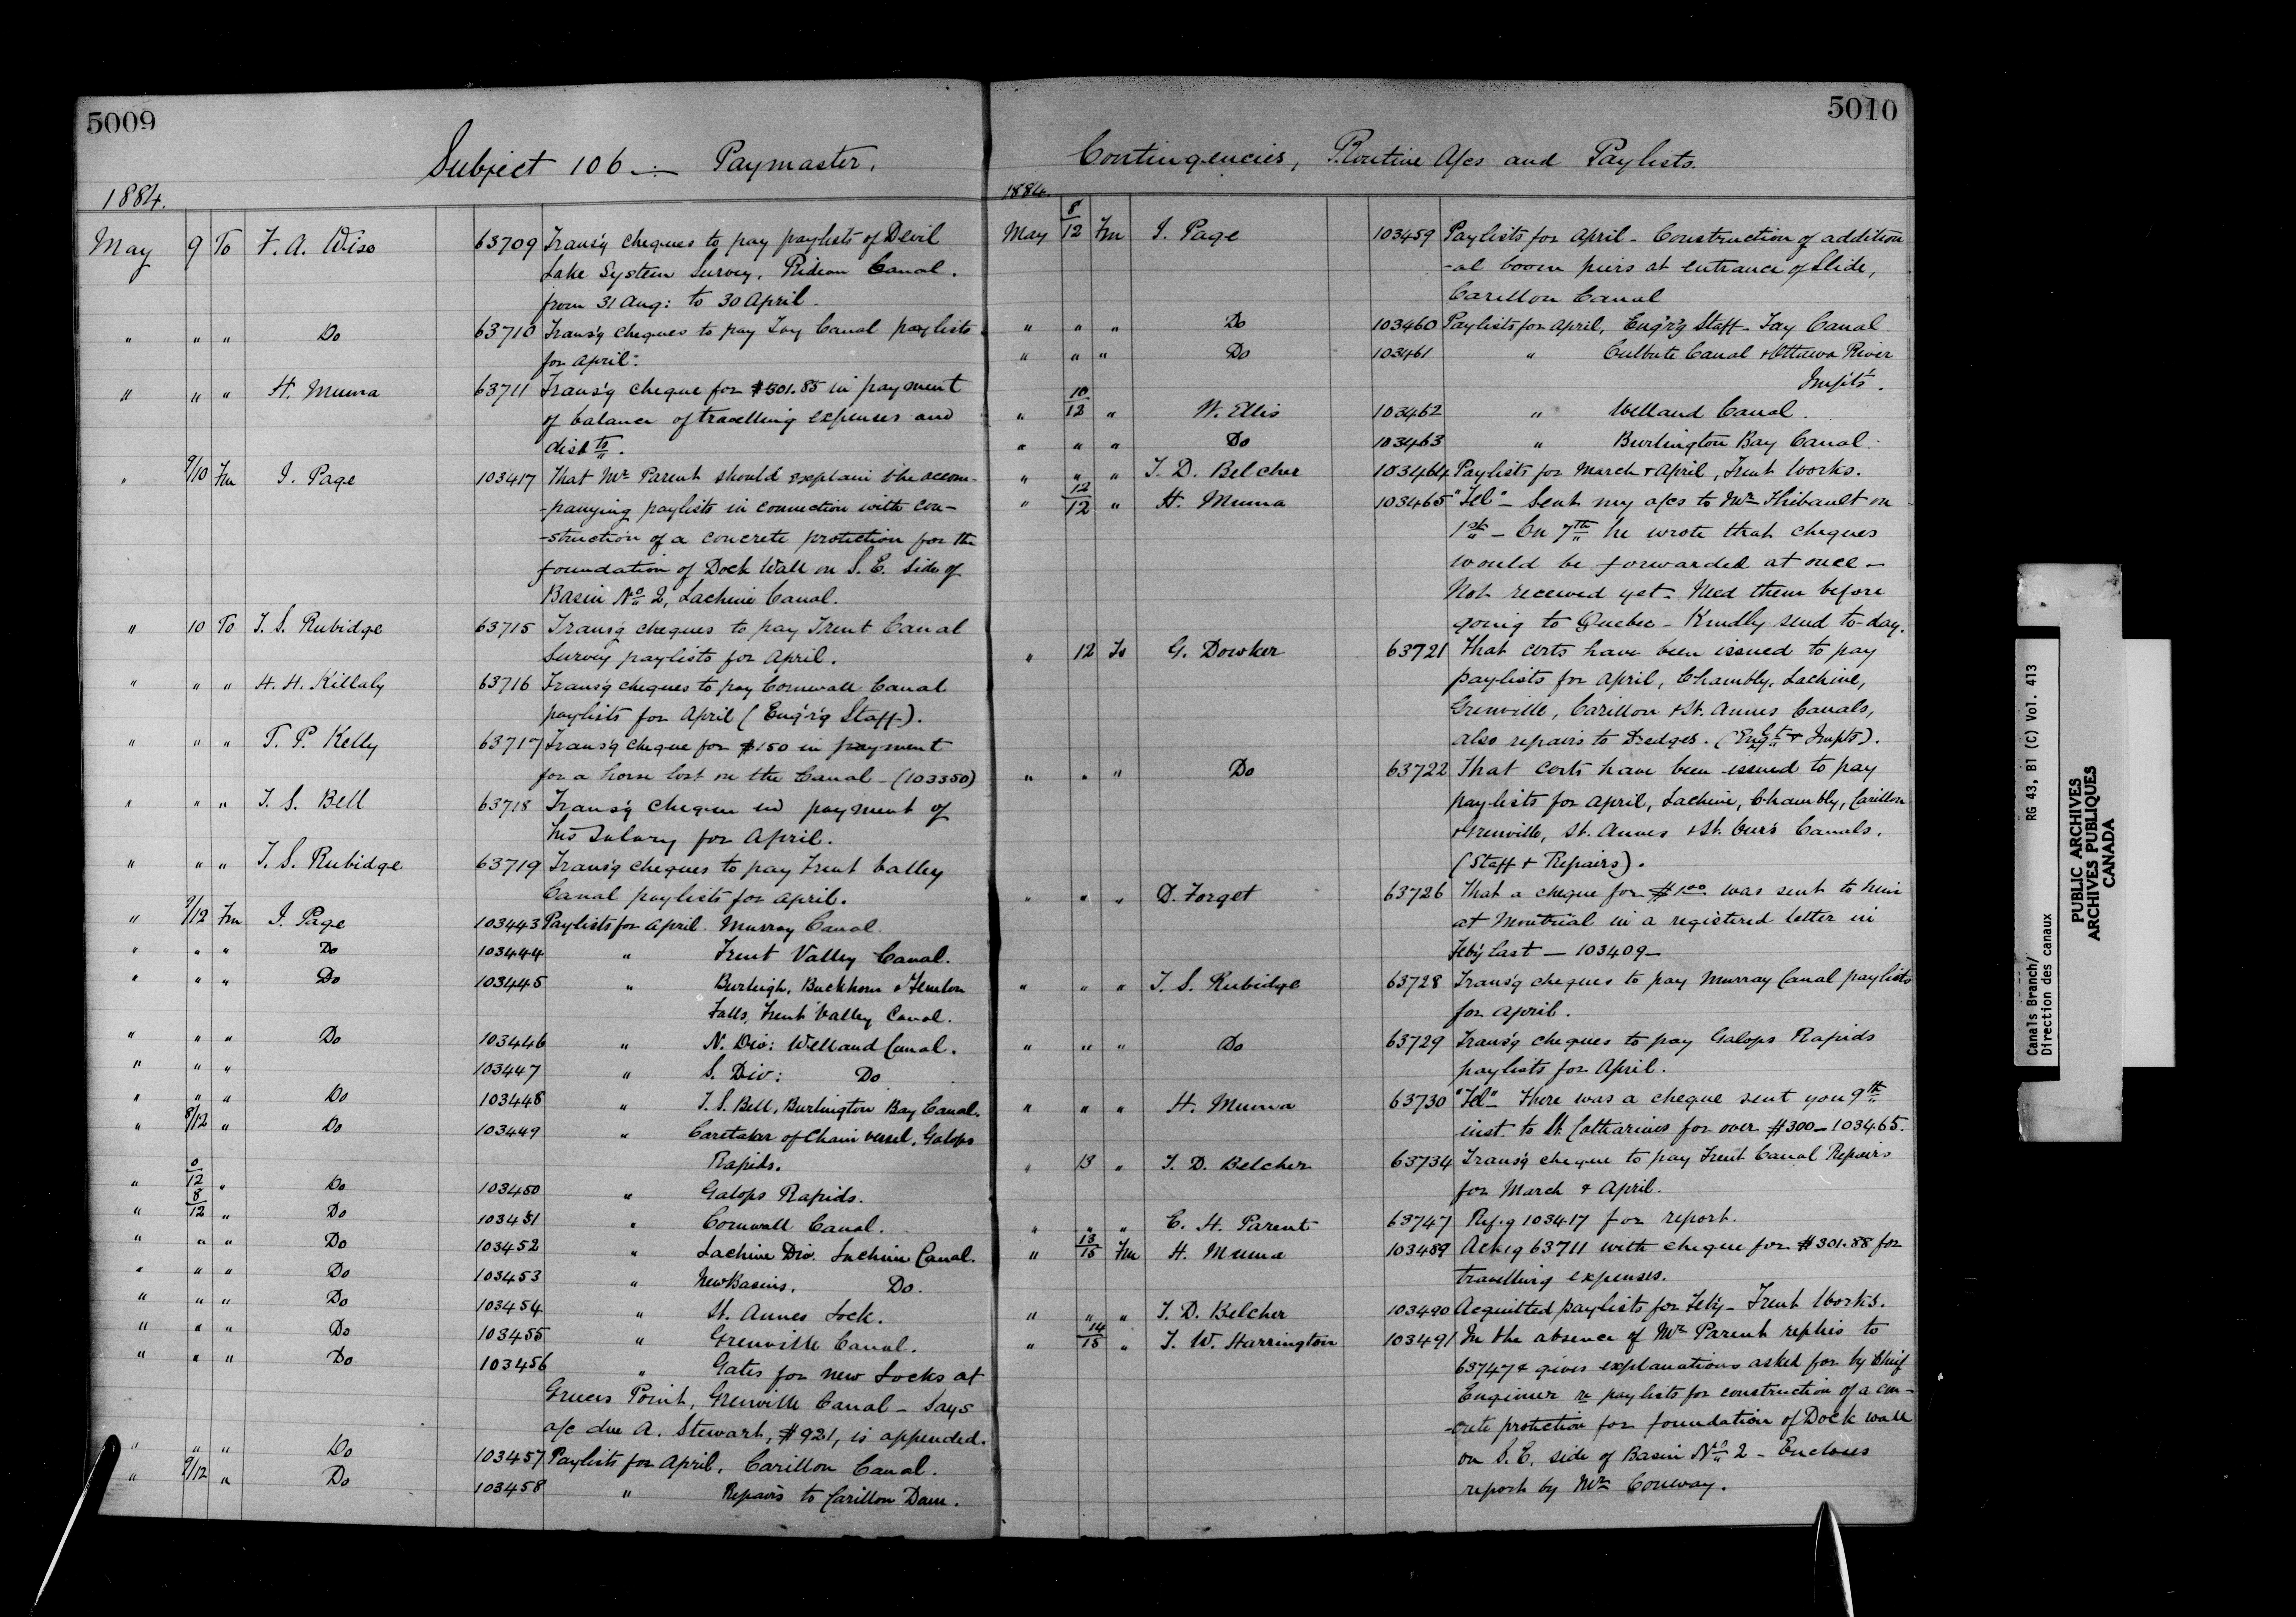 5009
Subject 106 — Paymaster.
1884.
May 9 To F. A. Wise 63709 Trans'g cheques to pay paylists of Devil
Lake System Survey, Rideau Canal.
from 31 Aug: to 30 April.
" " " Do 63710 Trans'g cheques to pay Tay Canal paylists
for April.
" " " H. Muma 63711 Trans'g cheque for $301.85 in payment
of balance of travelling expenses and
disbts.
" 9/10 Fm J. Page 103417 That Mr Parent should explain the accom-
-panying paylists in connection with con-
-struction of a concrete protection for the
foundation of Dock Wall on S. E. side of
Basin No 2, Lachine Canal.
" 10 To T. S. Rubidge 63715 Trans'g cheques to pay Trent Canal
Survey paylists for April.
" " " H. H. Killaly 63716 Trans'g cheques to pay Cornwall Canal
paylists for April (Eng'r'g Staff).
" " " T. P. Kelly 63717 Trans'g cheque for $150 in payment
for a horse lost on the Canal - (103350)
" " " T. S. Bell 63718 Trans'g cheque in payment of
his salary for April.
" " " T. S. Rubidge 63719 Trans'g cheques to pay Trent Valley
Canal paylists for April.
" 9/12 Fm J. Page 103443 Paylists for April. Murray Canal.
" " " Do 103444 " Trent Valley Canal.
" " " Do 103445 " Burleigh, Buckhorn & Fenelon
Falls, Trent Valley Canal.
" " " Do 103446 " N. Div: Welland Canal.
" " " 103447 " S. Div: Do
" " " Do 103448 " T. S. Bell, Burlington Bay Canal.
" 8/12 " Do 103449 " Caretaker of Chain vessel, Galops
Rapids.
" 0/12 " Do 103450 " Galops Rapids.
" 8/12 " Do 103451 " Cornwall Canal.
" " " Do 103452 " Lachine Div. Lachine Canal.
" " " Do 103453 " New Basins. Do.
" " " Do 103454 " St. Annes Lock.
" " " Do 103455 " Grenville Canal.
" " " Do 103456 " Gates for new Locks at
Greens Point, Grenville Canal - Says
a/c due A. Stewart, $921, is appended.
" " " Do 103457 Paylists for April, Carillon Canal.
" 9/12 " Do 103458 " Repairs to Carillon Dam.
5010
Contingencies, Routine A/cs and Paylists.
1884.
May 8/12 Fm J. Page 103459 Paylists for April - Construction of addition
-al boom piers at entrance of Slide,
Carillon Canal
" " " Do 103460 Paylists for April, Eng'r'g Staff - Tay Canal
" " " Do 103461 " Culbute Canal & Ottawa River
Impts.
" 10/12 " W. Ellis 103462 " Welland Canal.
" " " Do 103463 " Burlington Bay Canal.
" " " T. D. Belcher 103464 Paylists for March & April, Trent Works.
" 12/12 " H. Muma 103465 "Tel" - Sent my a/cs to Mr Thibault on
1st - On 7th he wrote that cheques
would be forwarded at once -
Not received yet - Need them before
going to Quebec - Kindly send to-day.
" 12 To G. Dowker 63721 That certs have been issued to pay
paylists for April, Chambly, Lachine,
Grenville, Carillon & St. Annes Canals,
also repairs to Dredges. (Engt & Impts).
" " " Do 63722 That certs have been issued to pay
paylists for April, Lachine, Chambly, Carillon
& Grenville, St. Annes & St. Ours Canals.
(Staff & Repairs).
" " " D. Forget 63726 That a cheque for $1.00 was sent to him
at Montreal in a registered letter in
Feb'y last — 103409 -
" " " T. S. Rubidge 63728 Trans'g cheques to pay Murray Canal paylists
for April.
" " " Do 63729 Trans'g cheques to pay Galops Rapids
paylists for April.
" " " H. Muma 63730 "Tel" - There was a cheque sent you 9th
inst. to St. Catharines for over $300 - 103465.
" 13 " T. D. Belcher 63734 Trans'g cheque to pay Trent Canal Repairs
for March & April.
" " " E. H. Parent 63747 Ref.g 103417 for report.
" 13/15 Fm H. Muma 103489 Ack'g 63711 with cheque for $301.88 for
travelling expenses.
" " " T. D. Belcher 103490 Acquitted paylists for Feb'y - Trent Works.
" 14/15 " T. W. Harrington 103491 In the absence of Mr Parent replies to
63747 & gives explanations asked for by Chief
Engineer re paylists for construction of a con-
-crete protection for foundation of Dock wall
on S. E. side of Basin No 2 - Encloses
report by Mr Conway.
Canals Branch/
Direction des canaux
RG 43, B1 (C) Vol. 413
PUBLIC ARCHIVES
ARCHIVES PUBLIQUES
CANADA